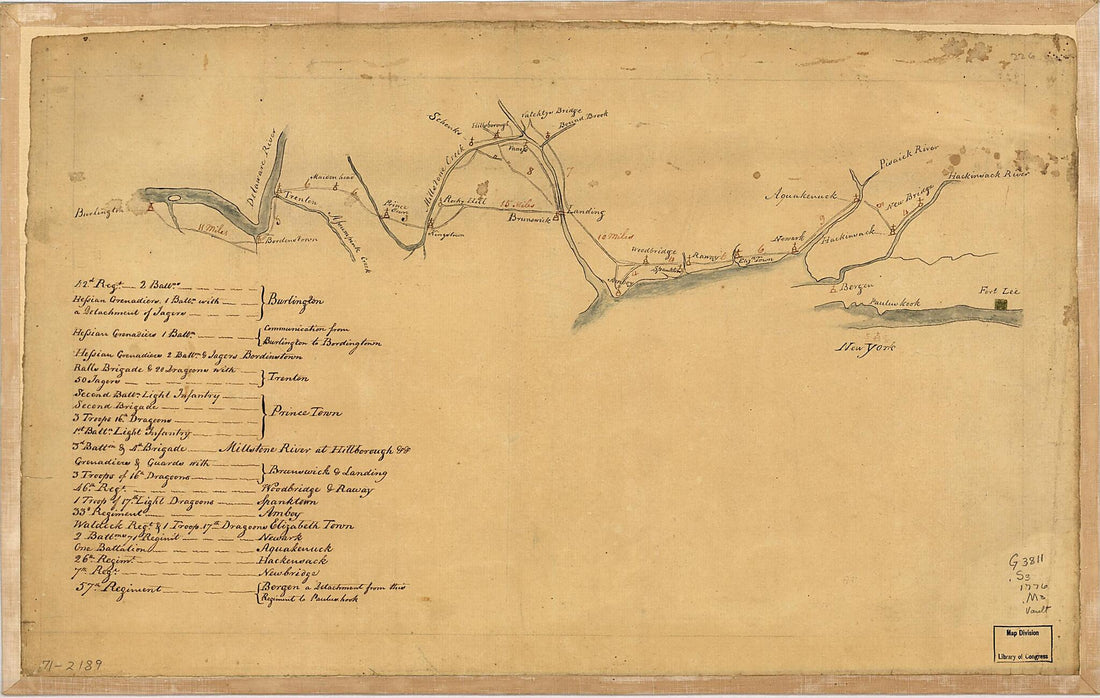 226
Delaware River
Burlington
11 Miles
Bordenstown
Trenton
6
Maidenhead
6
Assumpink Creek
Prince Town
Kingstown
Rocky Hill
15 Miles
Millstone Creek
Schenks
Hillsborough
Bound Brook
8
7
Brunswick
Landing
10 Miles
Woodbridge
Amboy
4
Raway
6
Eliz. Town
6
Newark
9
Aquakenuck
Pisaick River
New Bridge
Hackinsack River
Hackinsack
Bergen
Paulus hook
Fort Lee
New York
42d. Regt. 2 Battns.
Hessian Grenadiers, 1 Battn. with
a Detachment of Jagers
Burlington
Hessian Grenadiers 1 Battn.
Communication from
Burlington to Bordingtown
Hessian Grenadiers 2 Battns & Jagers Bordinstown
Ralls Brigade & 20 Dragoons with
50 Jagers
Trenton
Second Battn. Light Infantry
Second Brigade
3 Troops 16th. Dragoons
1st Battn. Light Infantry
Prince Town
3d Battn & 4th Brigade Millstone River at Hillborough &c
Grenadiers & Guards with
3 Troops of 16th Dragoons
Brunswick & Landing
46th Regt. Woodbridge & Raway
1 Troop of 17th Light Dragoons Spanktown
33d Regiment Amboy
Waldeck Regt. & 1 Troop 17th Dragoons Elizabeth Town
2 Battns 71st Regimt Newark
One Battalion Aquakenuck
26th Regimt. Hackensack
7th Regt. Newbridge
57th Regiment
Bergen a Detachment from this
Regiment to Paulus hook
G3811
.S3
1776
.M2
Vault
Map Division
Library of Congress
71-2189